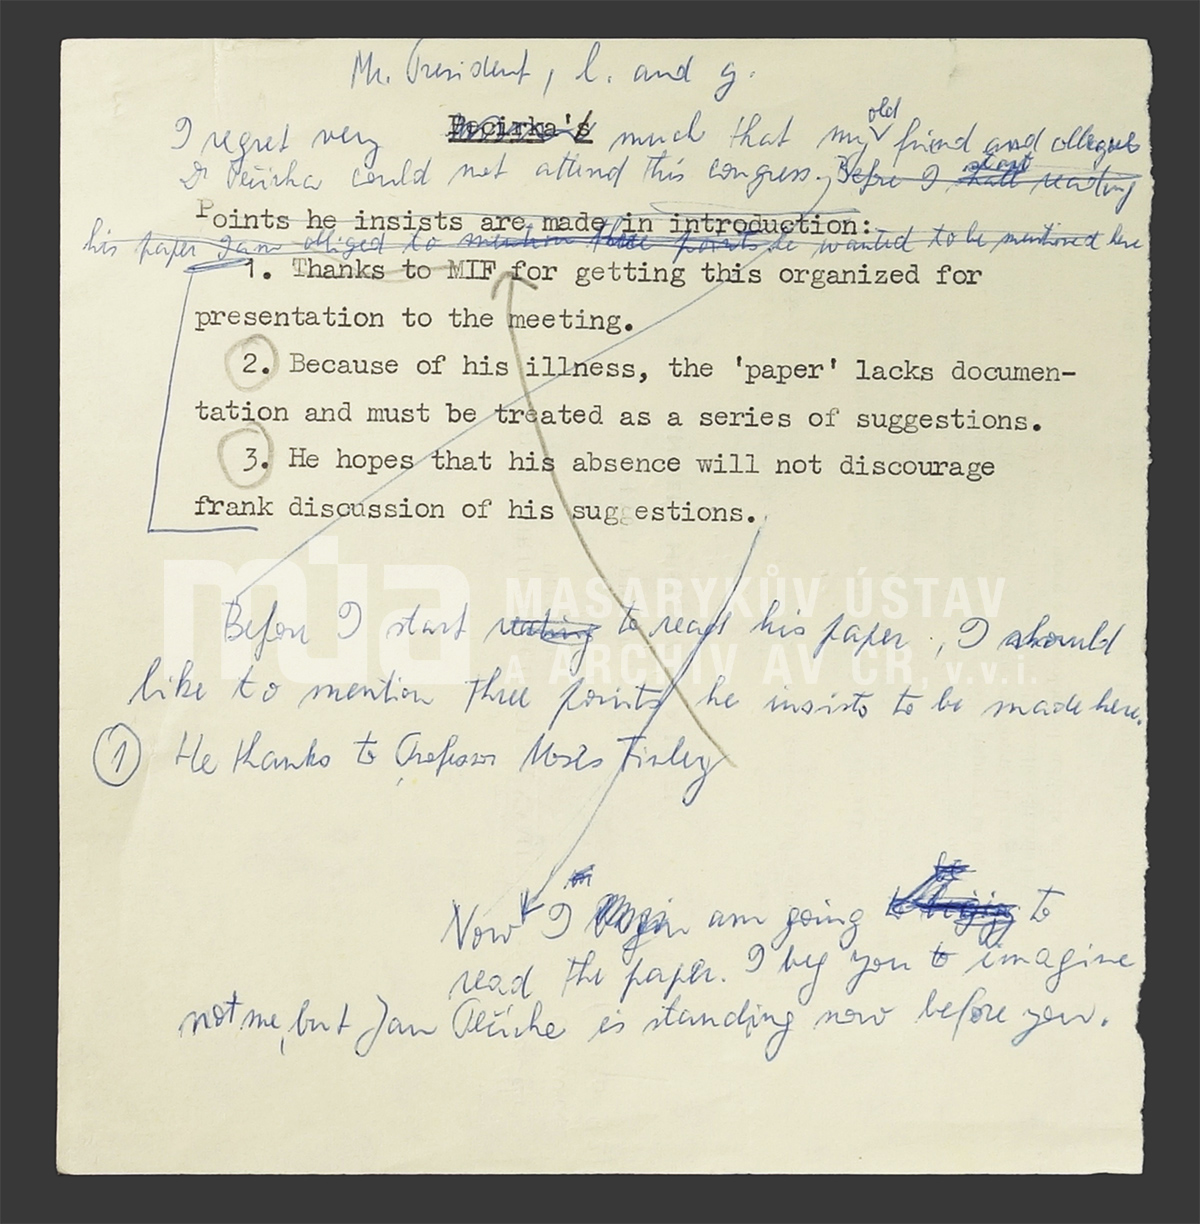 Mr. President, l. and g.
old
Pecirka's
I regret very much that my friend and collegue
Dr Pečirka could not attend this congress. Before I start reading
Points he insists are made in introduction:
his paper I am obliged to mention three points he wanted to be mentioned here
1. Thanks to MIF for getting this organized for
presentation to the meeting.
2. Because of his illness, the 'paper' lacks documen-
tation and must be treated as a series of suggestions.
3. He hopes that his absence will not discourage
frank discussion of his suggestions.
múa
MASARYKŮV ÚSTAV
A ARCHIV AV ČR, v.v.i.
Before I start to read his paper, I should
like to mention three points he insists to be made here.
1 He thanks to Professor Moses Finley
Now I am going to
read the paper. I beg you to imagine
not me, but Jan Pečirka is standing now before you.